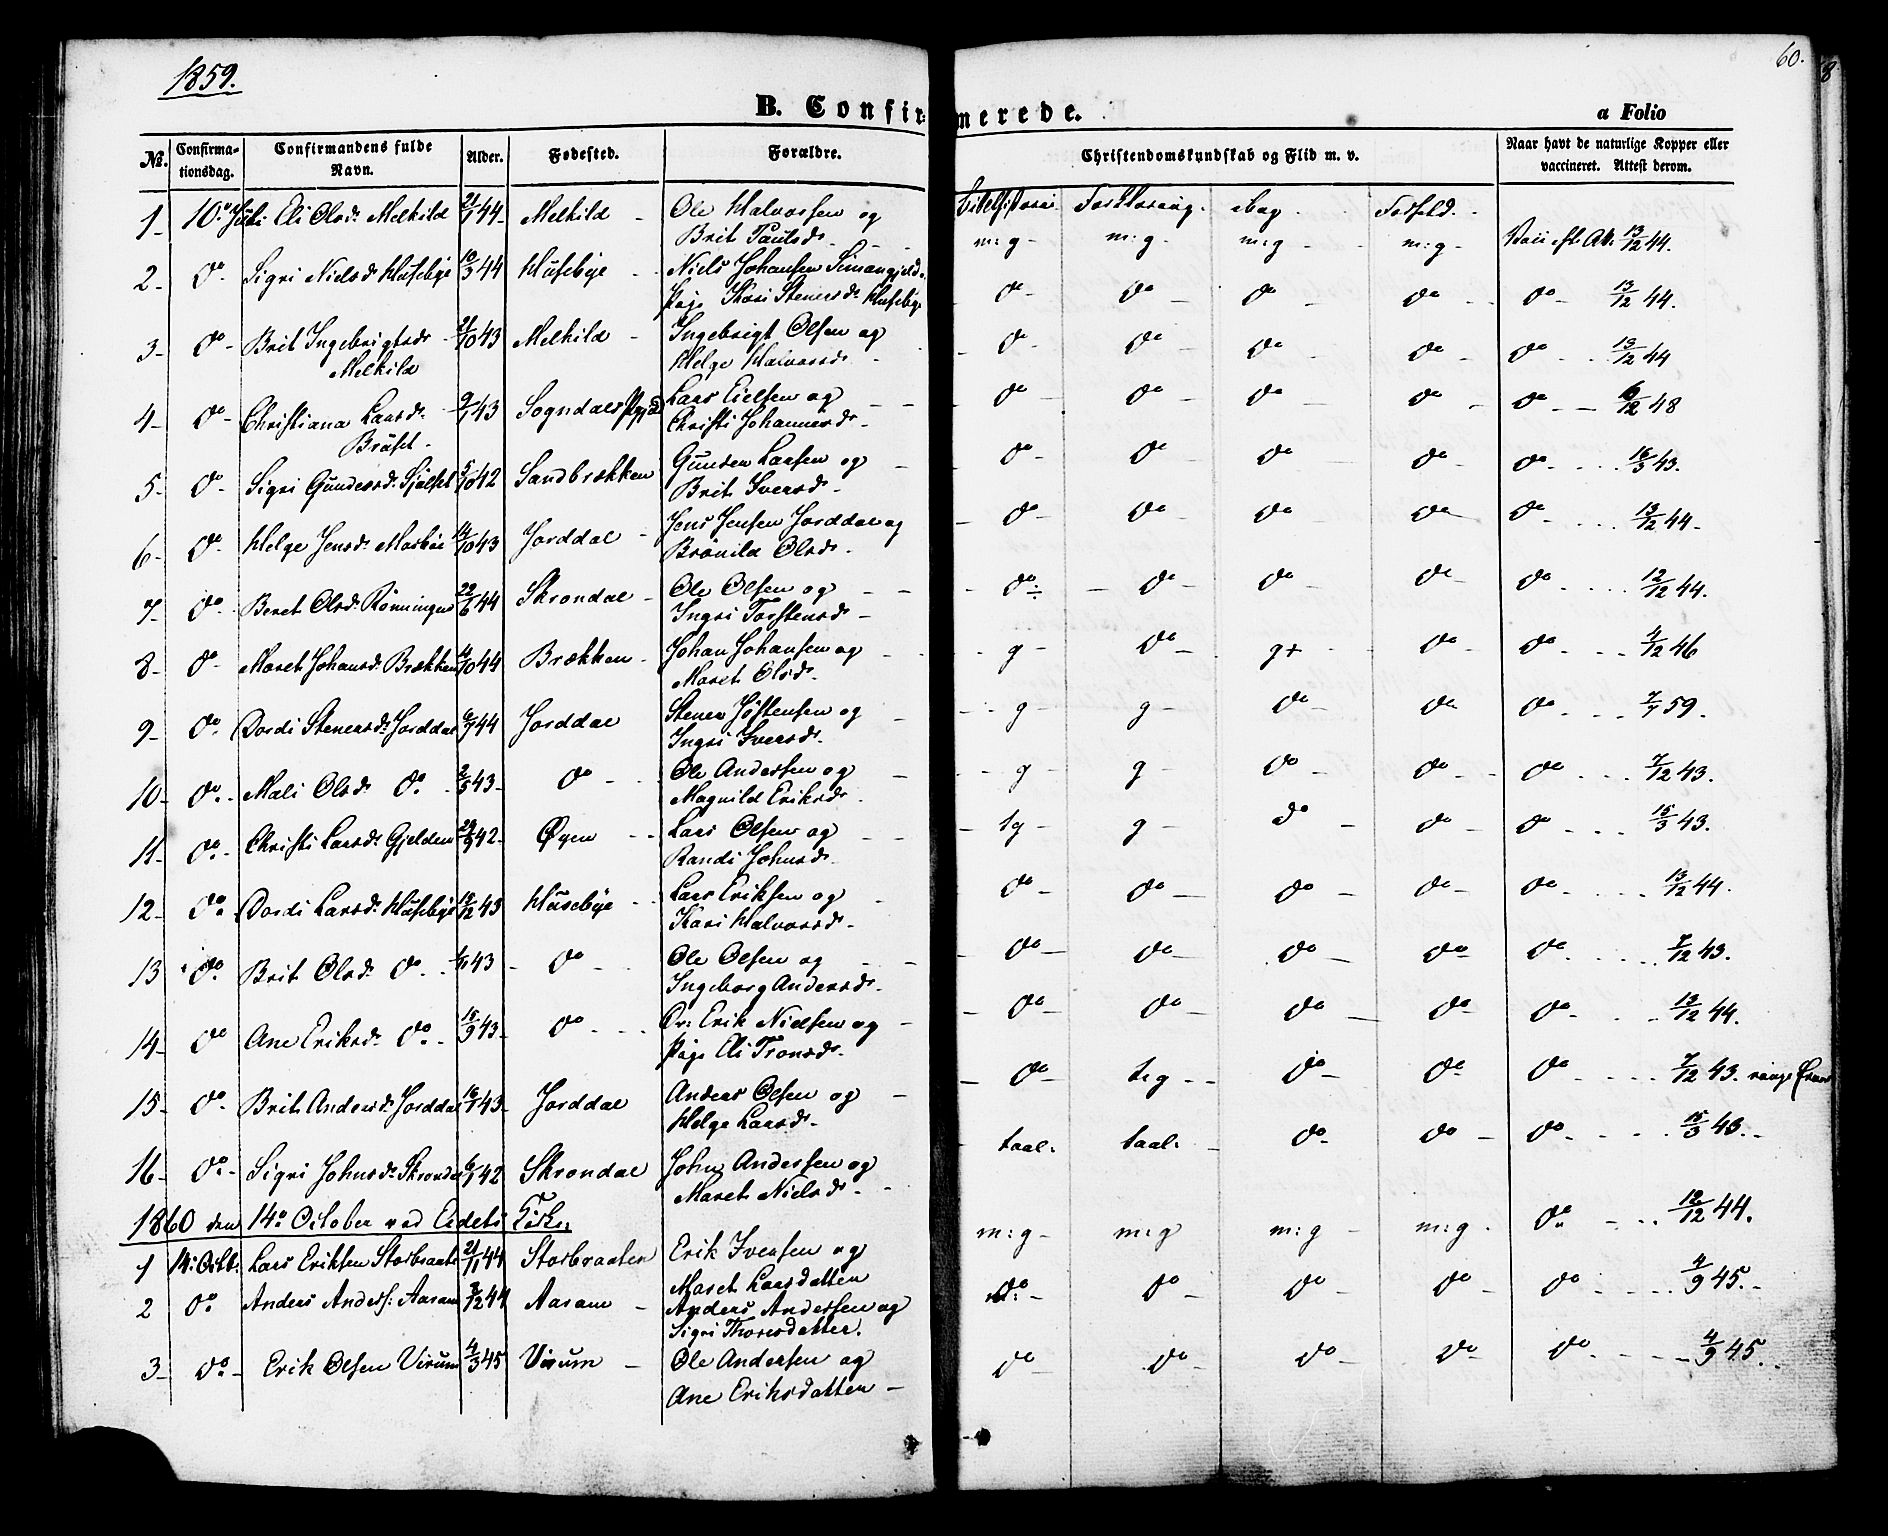 1859.
60.
8
B. Confir-
merede.
a Folio
No. Confirma-tionsdag. Confirmandens fulde Navn. Alder. Fødested. Forældre. Christendomskundskab og Flid m. v. Naar havt de naturlige Kopper eller vaccineret. Attest derom.
Bibelhistorie Forklaring. Bog Forhold.
1 10de Juli Eli Olsdr Melhild 21/1 44 Melhild Ole Halvorsen og m:g m:g m:g m:g Vacc. eft. At. 13/12 44.
Brit Paulsdr
2 do Sigri Nielsdr Husebye 10/3 44 Husebye Niels Johansen do do do do do 13/12 44.
Pige Kari Stenersdr Husebye
3 do Brit Ingebrigtsdr 21/10 43 Melhild Ingebrigt Olsen og do do do do do 13/12 44
Melhild Helge Halvorsdr
4 do Christiana Larsdr 9/1 43 Sogndals Lars og do do do do do 6/12 48
Christi Johannesdr
5 do Sigri Gundersdr 5/10 42 Sandbrækken Gunder Larsen og do do do do do 16/3 43.
Brit Iversdr
6 do Helge Jensdr 14/10 43 Jorddal Jens Jensen Jorddal og do do do do do 13/12 44
Brønild Olsdr
7 do Beret Olsdr Rønningen 22/6 44 Skrondal Ole Olsen og do÷ do do do do 12/12 44.
Ingri Torstensdr
8 do Maret Johansdr Brækken 4/10 44 Brækken Johan Johansen og g do g+ do do 4/12 46
Maret Olsdr
9 do Dordi Stenersdr Jorddal 6/7 44 Jorddal Stener Jostensen og g g do do do 7/7 59.
Ingri Iversdr
10 do Mali Olsdr do 2/5 43 do Ole Andersen og g g do do do 7/12 43.
Magnild Eriksdr
11 do Christi Larsdr Gjelden 29/9 42 Øyen Lars Olsen og tg g do do do 15/3 43.
Randi Johnsdr
12 do Dordi Larsdr Husebye 15/12 43 Husebye Lars Eriksen og do do do do do 13/12 44.
Kari Halvorsdr
13 do Brit Olsdr do 1/11 43 do Ole Olsen og do do do do do 7/12 43.
Ingeborg Andersdr
14 do Ane Eriksdr do 15/9 43 do Erik Nielsen og do do do do do 13/12 44.
Pige Eli Tronsdr
15 do Brit Andersdr Jorddal 16/1 43 Jorddal Anders Olsen og do tg do do do 7/12 43.
Helge Larsdr
16 do Sigri Johnsdr Skrondal 6/1 42 Skrondal John Andersen og taal: taal: do do do 15/3 43.
Maret Nielsdr
1860 den 14de October ved Eidets Kirke
1 14: Octb: Lars Eriksen Storbraaten 21/11 44 Storbraaten Erik Iversen og m:g m:g m:g m:g do 12/12 44.
Maret Larsdatter
2 do Anders Anders: Aaram 9/12 44 Aaram Anders Andersen og do do do do do 4/9 45.
Sigri Thoresdatter.
3 do Erik Olsen Virum 4/3 45 Virum Ole Andersen og do do do do do 4/9 45.
Ane Eriksdatter